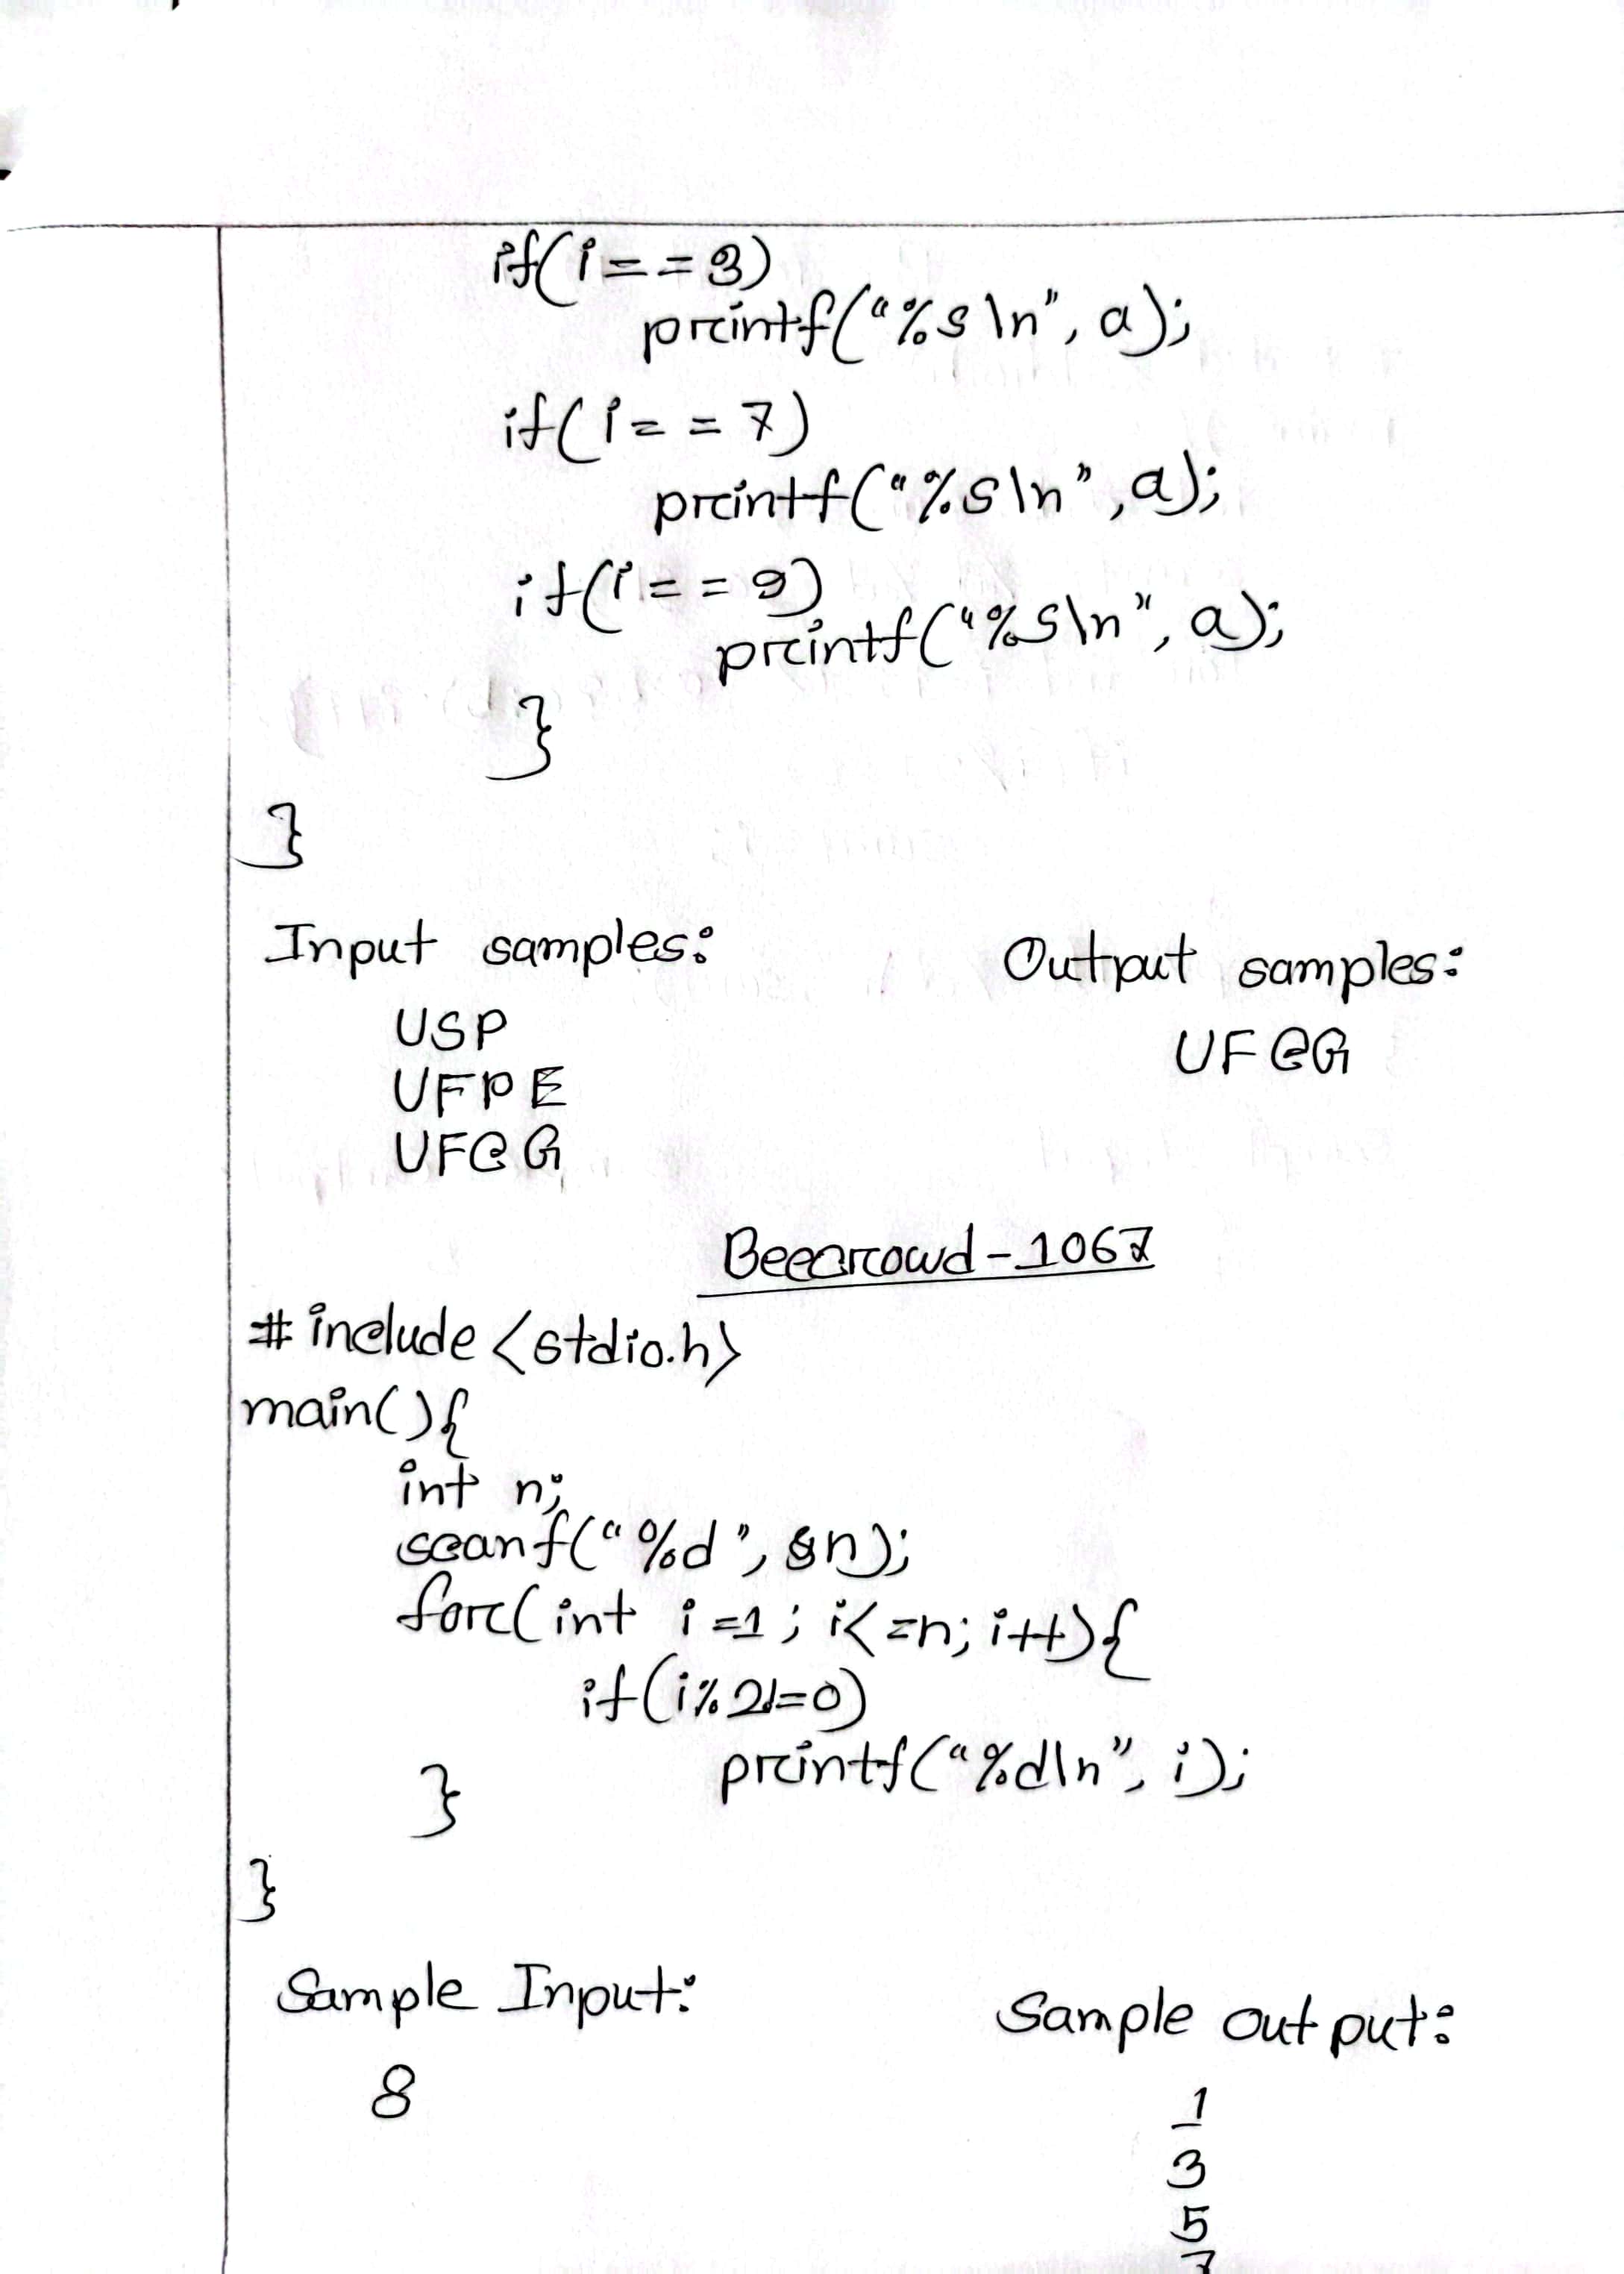 if(i==3)
printf("%s\n", a);
if(i==7)
printf("%s\n", a);
if(i==9)
printf("%s\n", a);
}
}
Input samples:
Output samples:
USP
UFCG
UFPE
UFCG
Beecrowd-1067
#include <stdio.h>
main(){
int n;
scanf("%d", &n);
for(int i=1; i<=n; i++){
if(i%2!=0)
printf("%d\n", i);
}
}
Sample Input:
Sample output:
8
1
3
5
7